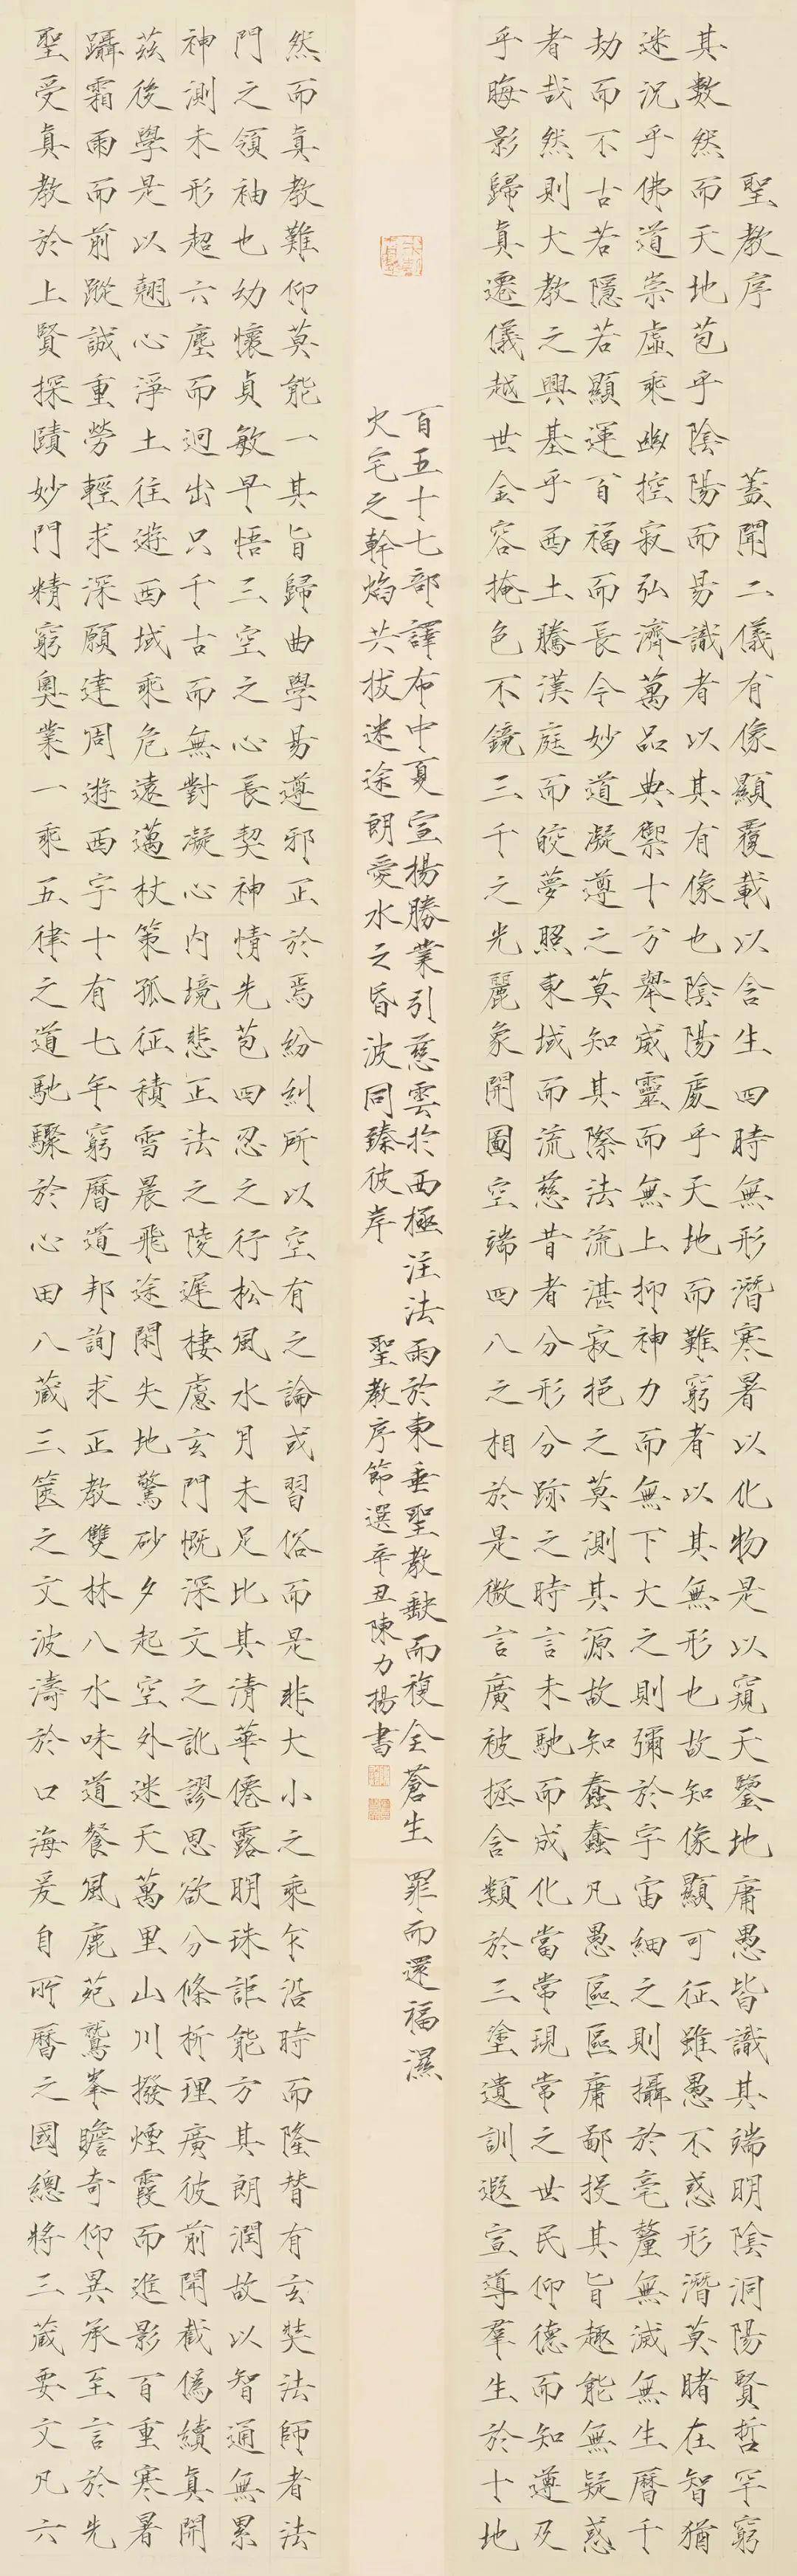 聖教序 蓋聞二儀有像顯覆載以含生四時無形潛寒暑以化物是以窺天鑒地庸愚皆識其端明陰洞陽賢哲罕窮
其數然而天地苞乎陰陽而易識者以其有像也陰陽處乎天地而難窮者以其無形也故知像顯可征雖愚不惑形潛莫睹在智猶
迷況乎佛道崇虛乘幽控寂弘濟萬品典禦十方舉威靈而無上抑神力而無下大之則彌於宇宙細之則攝於毫釐無滅無生曆千
劫而不古若隱若顯運百福而長今妙道凝遵之莫知其際法流湛寂挹之莫測其源故知蠢蠢凡愚區區庸鄙投其旨趣能無疑惑
者哉然則大教之興基乎西土騰漢庭而皎夢照東域而流慈昔者分形分跡之時言未馳而成化當常現常之世民仰德而知遵及
乎晦影歸真遷儀越世金容掩色不鏡三千之光麗象開圖空端四八之相於是微言廣被拯含類於三塗遺訓遐宣導羣生於十地
然而真教難仰莫能一其旨歸曲學易遵邪正於焉紛糾所以空有之論或習俗而是非大小之乘乍沿時而隆替有玄奘法師者法
門之領袖也幼懷貞敏早悟三空之心長契神情先苞四忍之行松風水月未足比其清華僊露明珠詎能方其朗潤故以智通無累
神測未形超六塵而迥出只千古而無對凝心內境悲正法之陵遲棲慮玄門慨深文之訛謬思欲分條析理廣彼前聞截偽續真開
茲後學是以翹心淨土往遊西域乘危遠邁杖策孤征積雪晨飛途閑失地驚砂夕起空外迷天萬里山川撥煙霞而進影百重寒暑
躡霜雨而前蹤誠重勞輕求深願達周遊西宇十有七年窮曆道邦詢求正教雙林八水味道餐風鹿苑鷲峯瞻奇仰異承至言於先
聖受真教於上賢探賾妙門精窮奧業一乘五律之道馳驟於心田八藏三篋之文波濤於口海爰自所曆之國總將三藏要文凡六
百五十七部譯布中夏宣揚勝業引慈雲於西極注法雨於東垂聖教缺而複全蒼生罪而還福濕
火宅之幹焰共拔迷途朗愛水之昏波同臻彼岸 聖教序節選辛丑陳力揚書